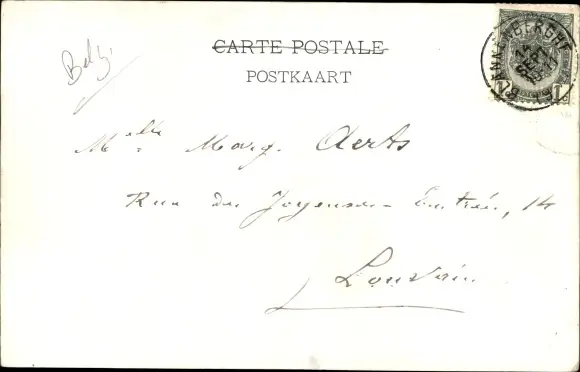 CARTE POSTALE
POSTKAART
BLANKENBERGHE
1
Belg.
Melle Marg. Aerts
Rue de Joyeuse Entrée, 14
Louvain